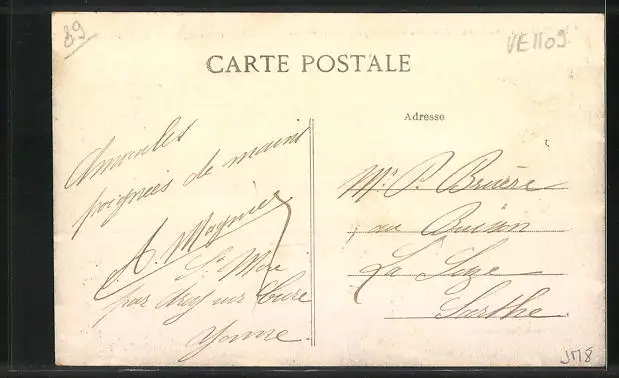 89
VE1109
CARTE POSTALE
Adresse
Amicales
poignées de mains
A. Magnier
St Moré
par Arcy sur Cure
Yonne.
Mr P. Bruère
au Buisson
La Suze
Sarthe
JM8